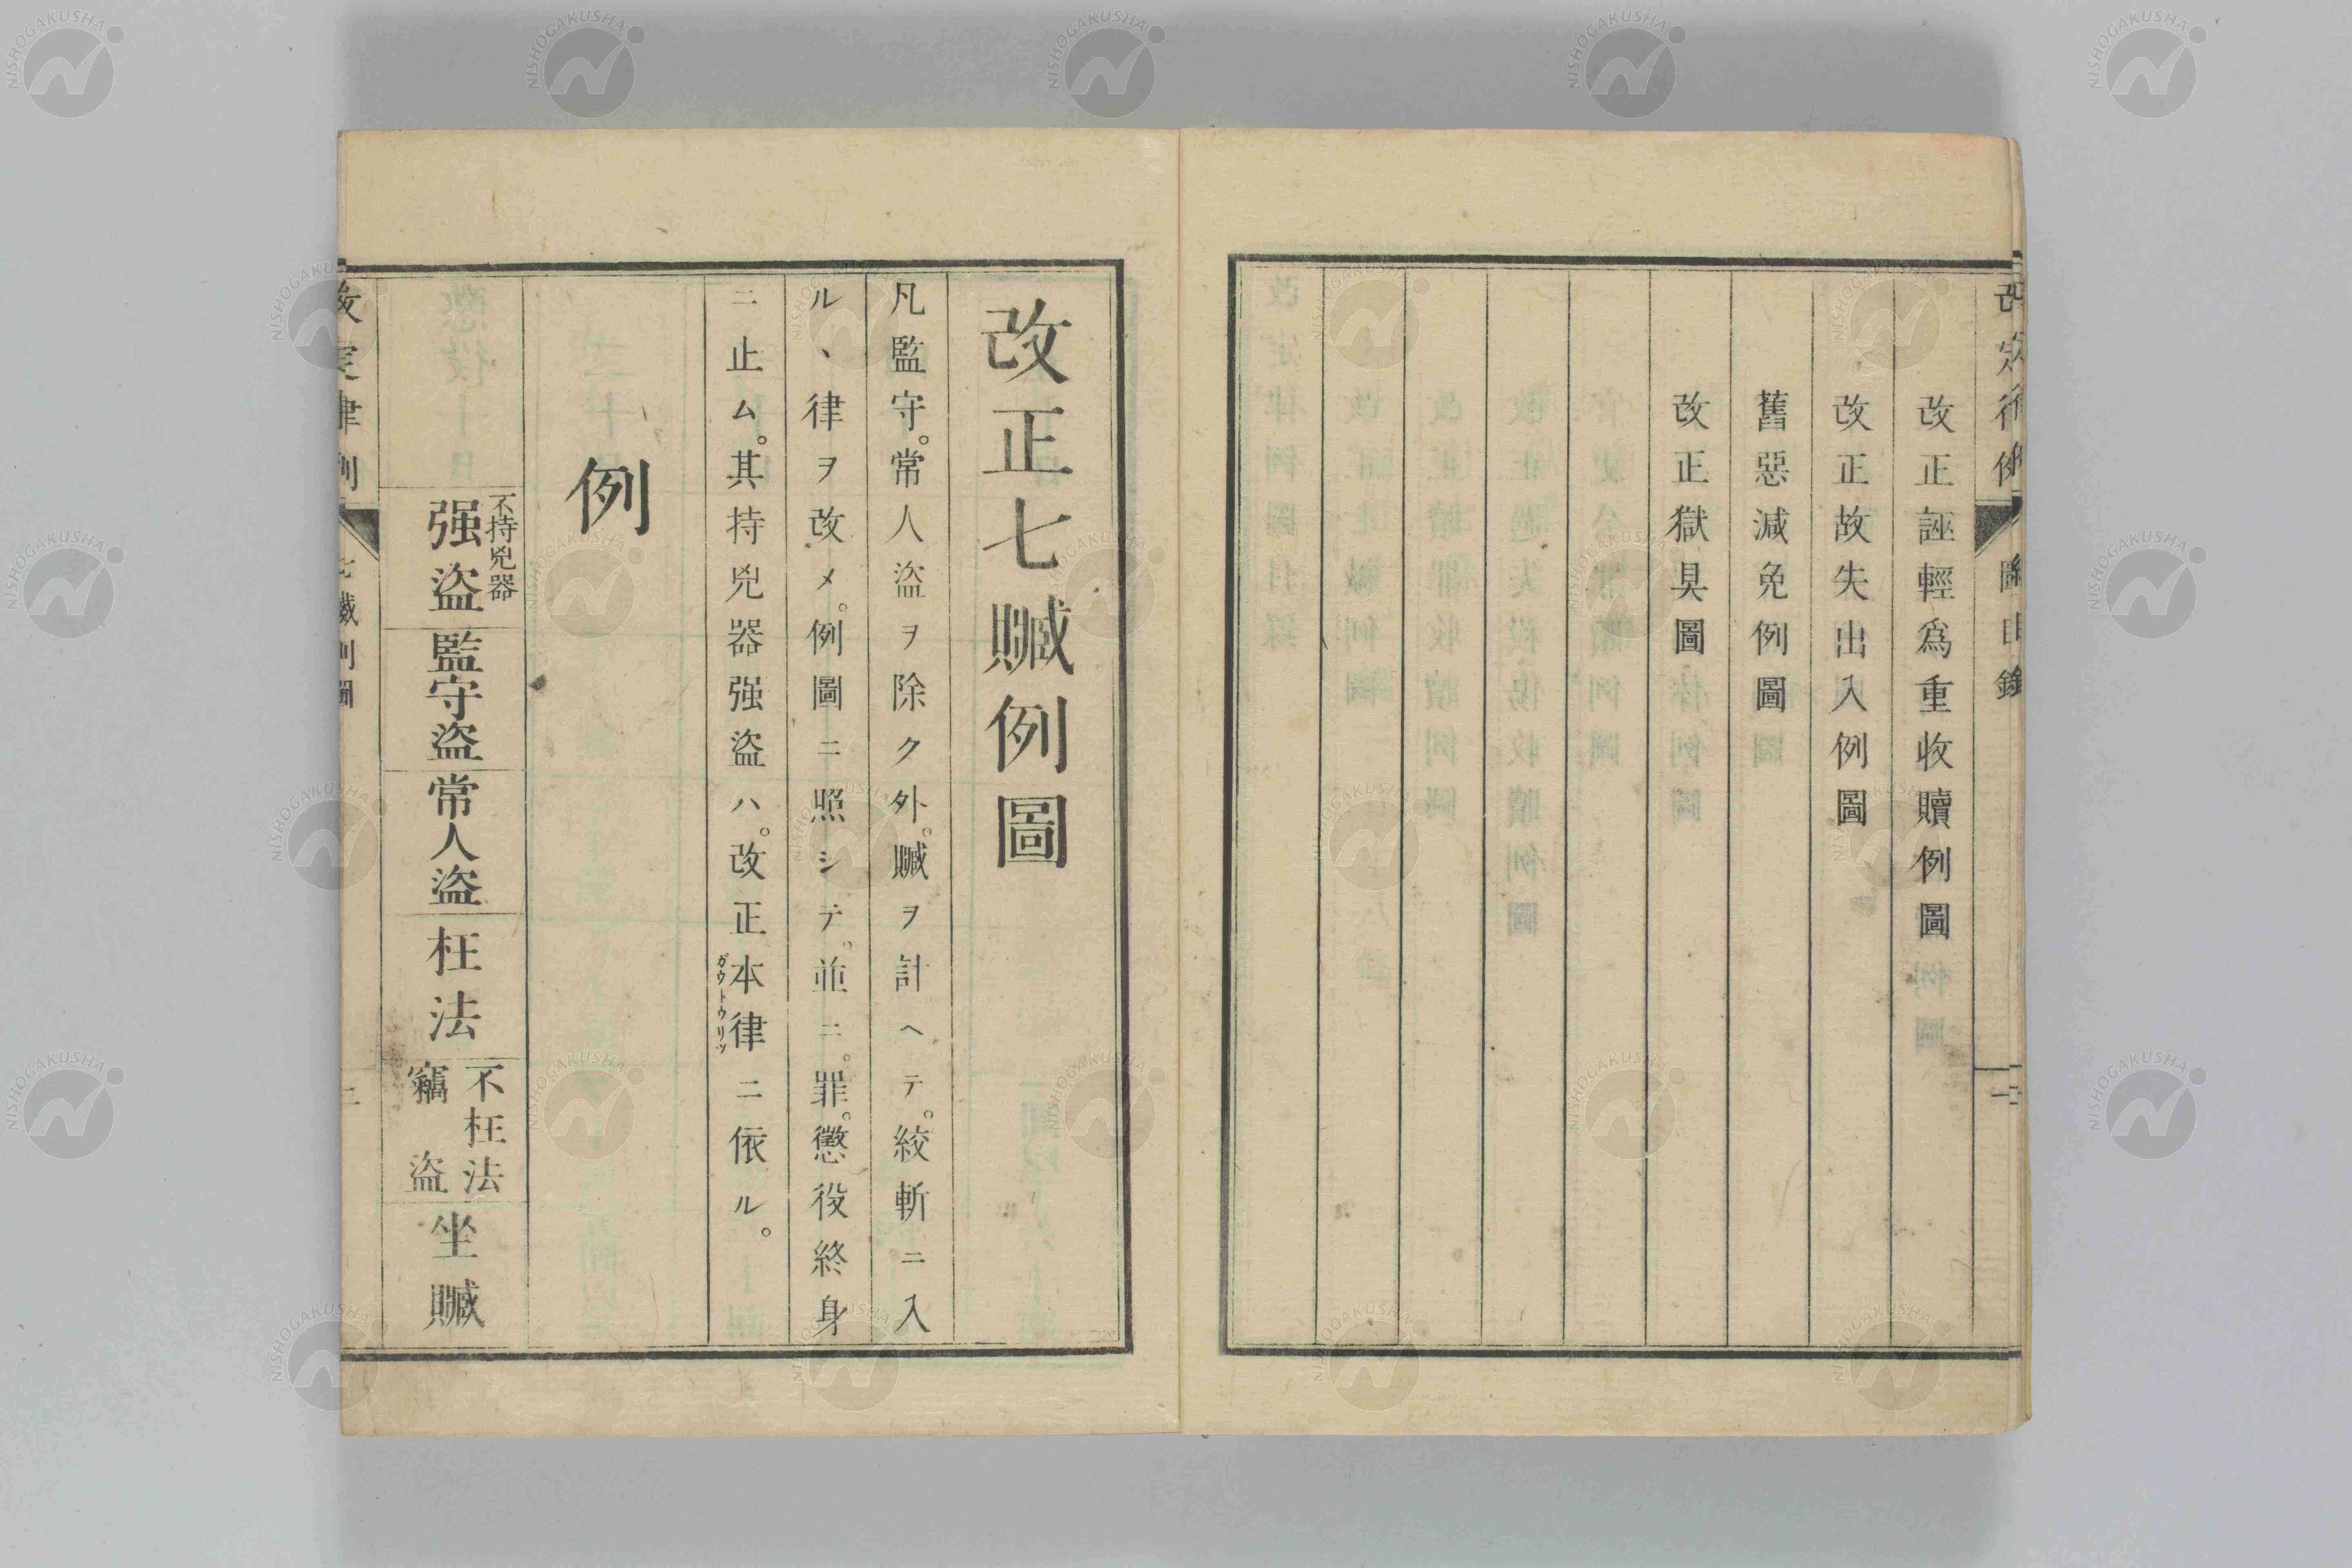 改正誣輕為重收贖例圖
改正故失出入例圖
舊惡減免例圖
改正獄具圖
改正七贓例圖
凡監守。常人盜ヲ除ク外。贓ヲ計ヘテ。絞斬ニ入
ル、律ヲ改メ。例圖ニ照シテ。並ニ。罪。懲役終身
ニ止ム。其持兇器强盜ハ。改正本律ニ依ル。
ガウトウリツ
例
不持兇器
强盜
監守盜
常人盜
枉法
不枉法
竊盜
坐贓
NISHOGAKUSHA